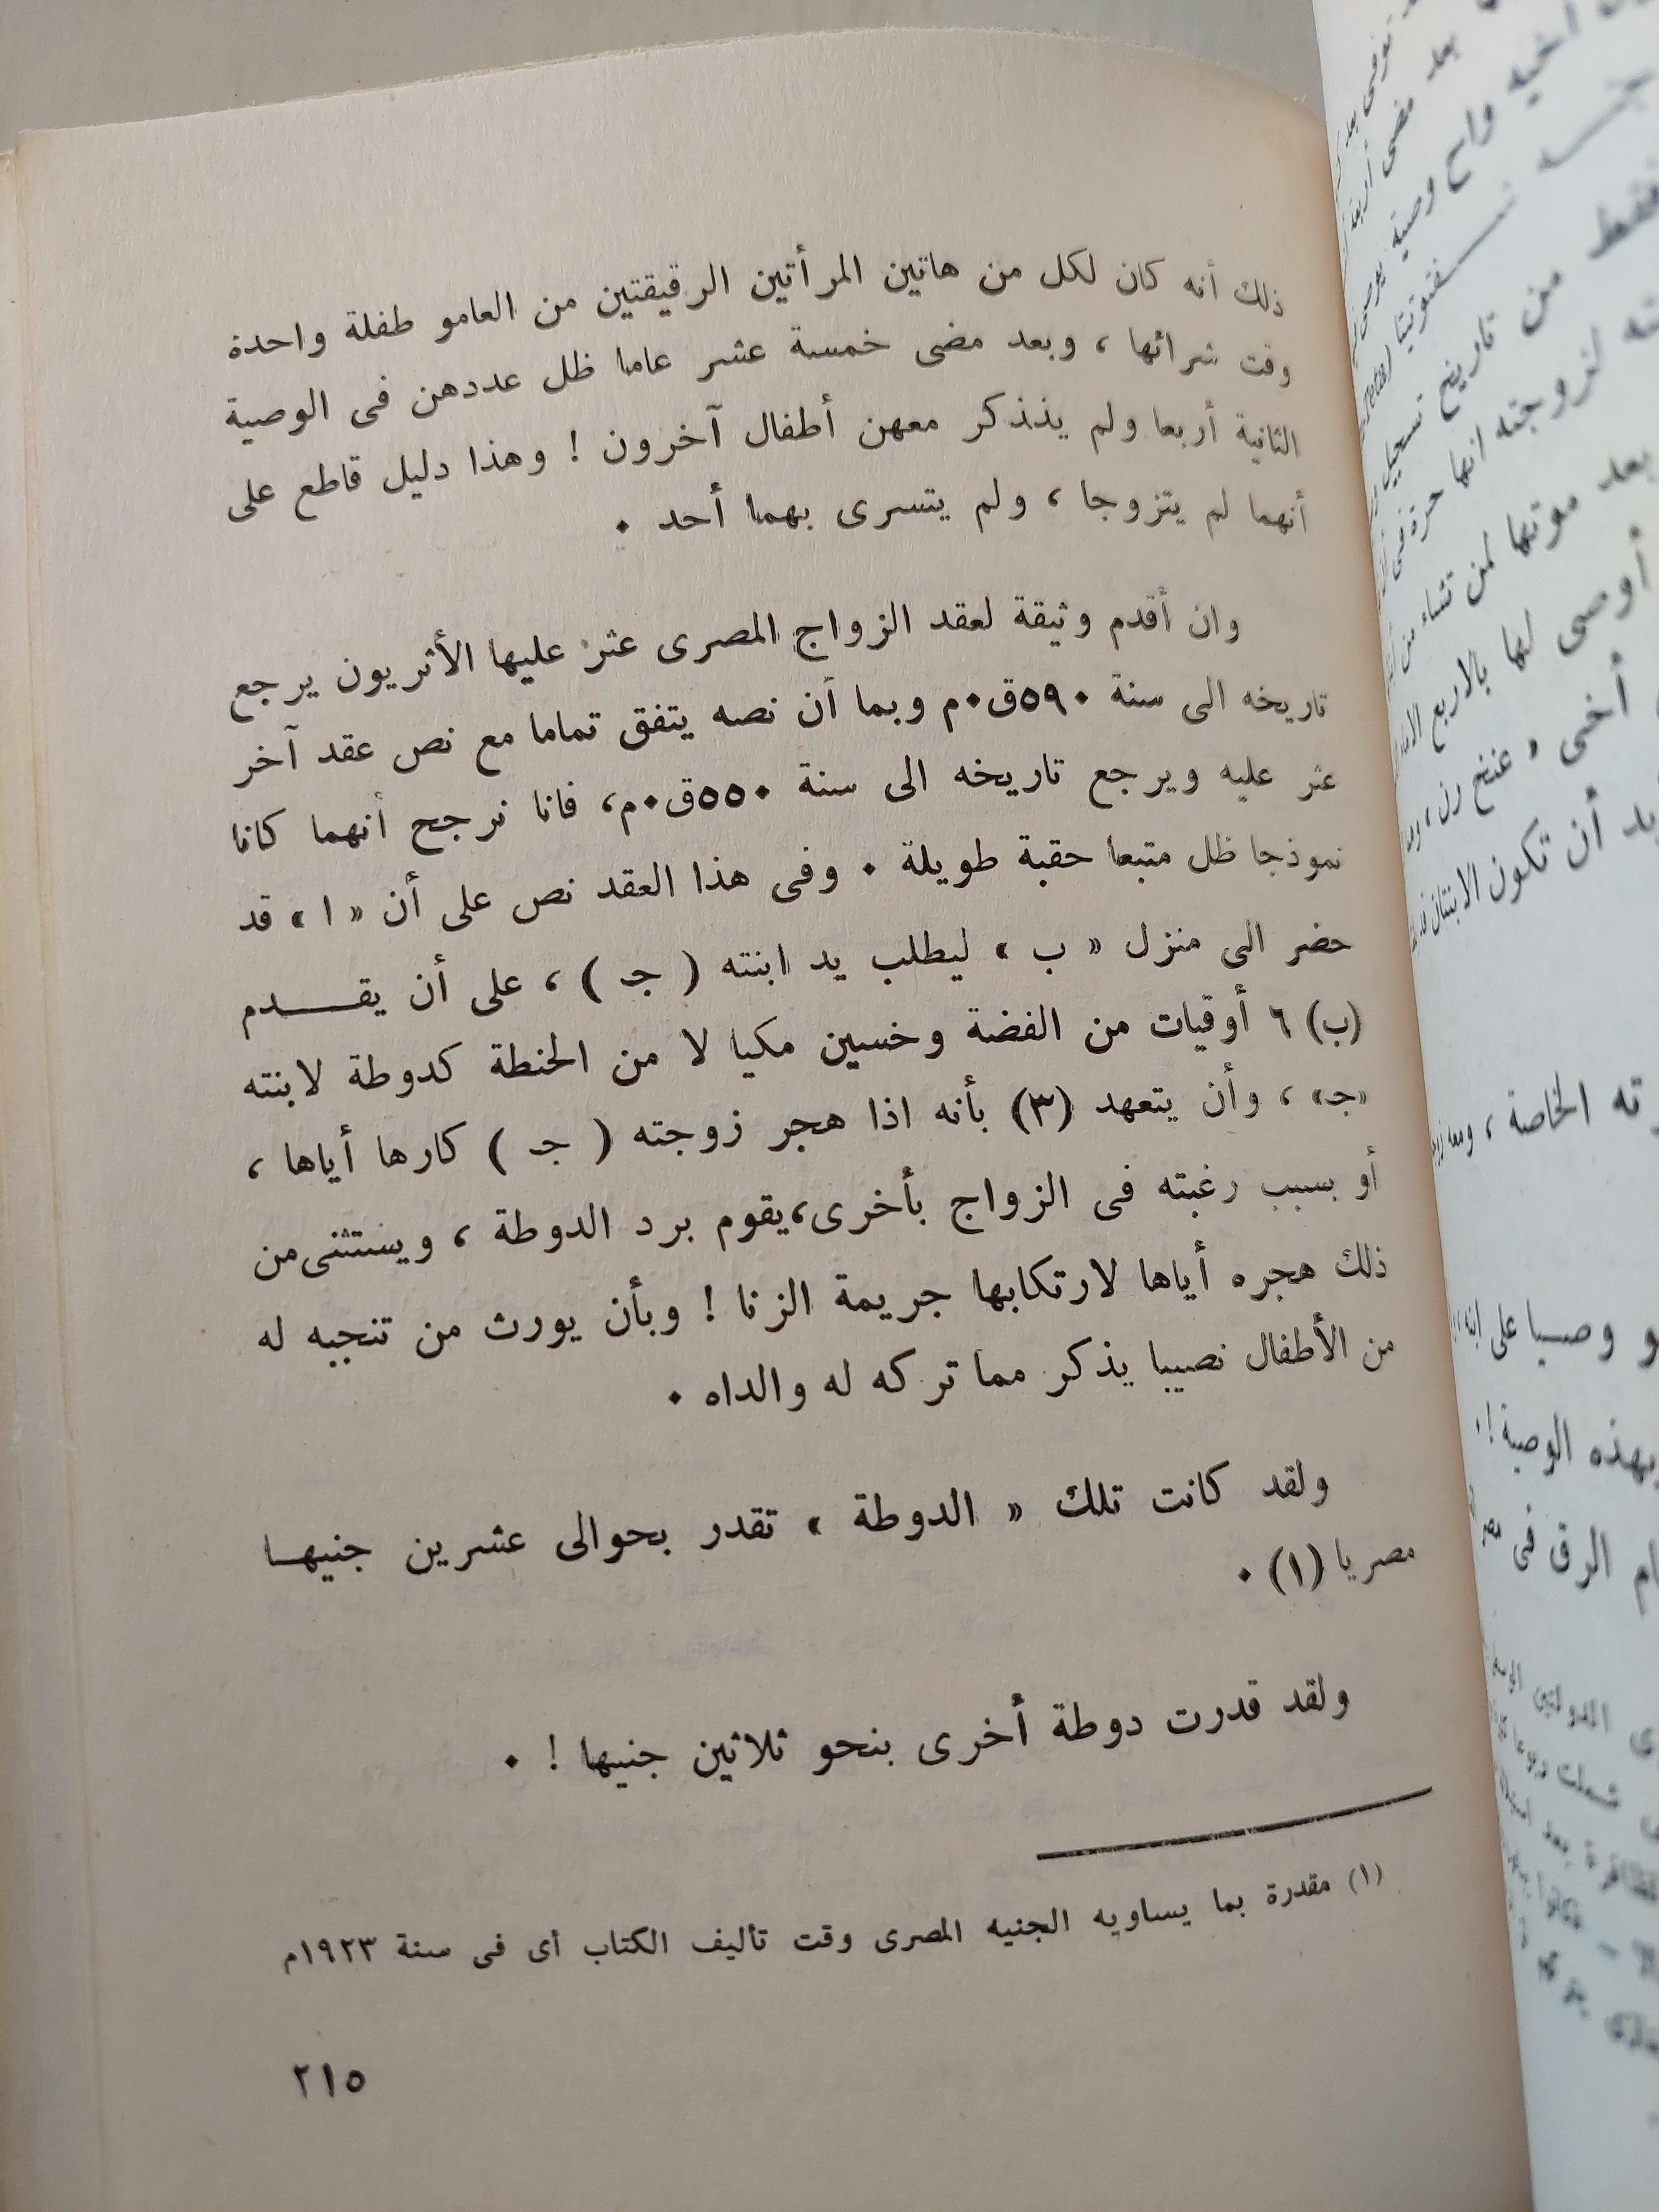 ذلك أنه كان لكل من هاتين المرأتين الرقيقتين من العامو طفلة واحدة
وقت شرائها ، وبعد مضى خمسة عشر عاما ظل عددهن فى الوصية
الثانية أربعا ولم يذذكر معهن أطفال آخرون ! وهذا دليل قاطع على
أنهما لم يتزوجا ، ولم يتسرى بهما أحد ٠
وان أقدم وثيقة لعقد الزواج المصرى عثر عليها الأثريون يرجع
تاريخه الى سنة ٥٩٠ق٠م وبما أن نصه يتفق تماما مع نص عقد آخر
عثر عليه ويرجع تاريخه الى سنة ٥٥٠ق٠م، فانا نرجح أنهما كانا
نموذجا ظل متبعا حقبة طويلة ٠ وفى هذا العقد نص على أن « ا » قد
حضر الى منزل « ب » ليطلب يد ابنته ( جـ ) ، على أن يقـــدم
(ب) ٦ أوقيات من الفضة وخسين مكيا لا من الحنطة كدوطة لابنته
«جـ» ، وأن يتعهد (٣) بأنه اذا هجر زوجته ( جـ ) كارها أياها ،
أو بسبب رغبته فى الزواج بأخرى،يقوم برد الدوطة ، ويستثنى من
ذلك هجره أياها لارتكابها جريمة الزنا ! وبأن يورث من تنجبه له
من الأطفال نصيبا يذكر مما تركه له والداه ٠
ولقد كانت تلك « الدوطة » تقدر بحوالى عشرين جنيهـا
مصريا (١) ٠
ولقد قدرت دوطة أخرى بنحو ثلاثين جنيها ! ٠
(١) مقدرة بما يساويه الجنيه المصرى وقت تأليف الكتاب أى فى سنة ١٩٢٣م
٢١٥
أخيه واح وصية
فقط من تاريخ تسجيل
لزوجته انها حرة فى
بعد موتها لمن تشاء من
أوصى لها بالاربع
أخى « عنخ رن ،
أن تكون الابنتان
الخاصة ، ومعه
وصيا على
بهذه الوصية !
الرق فى